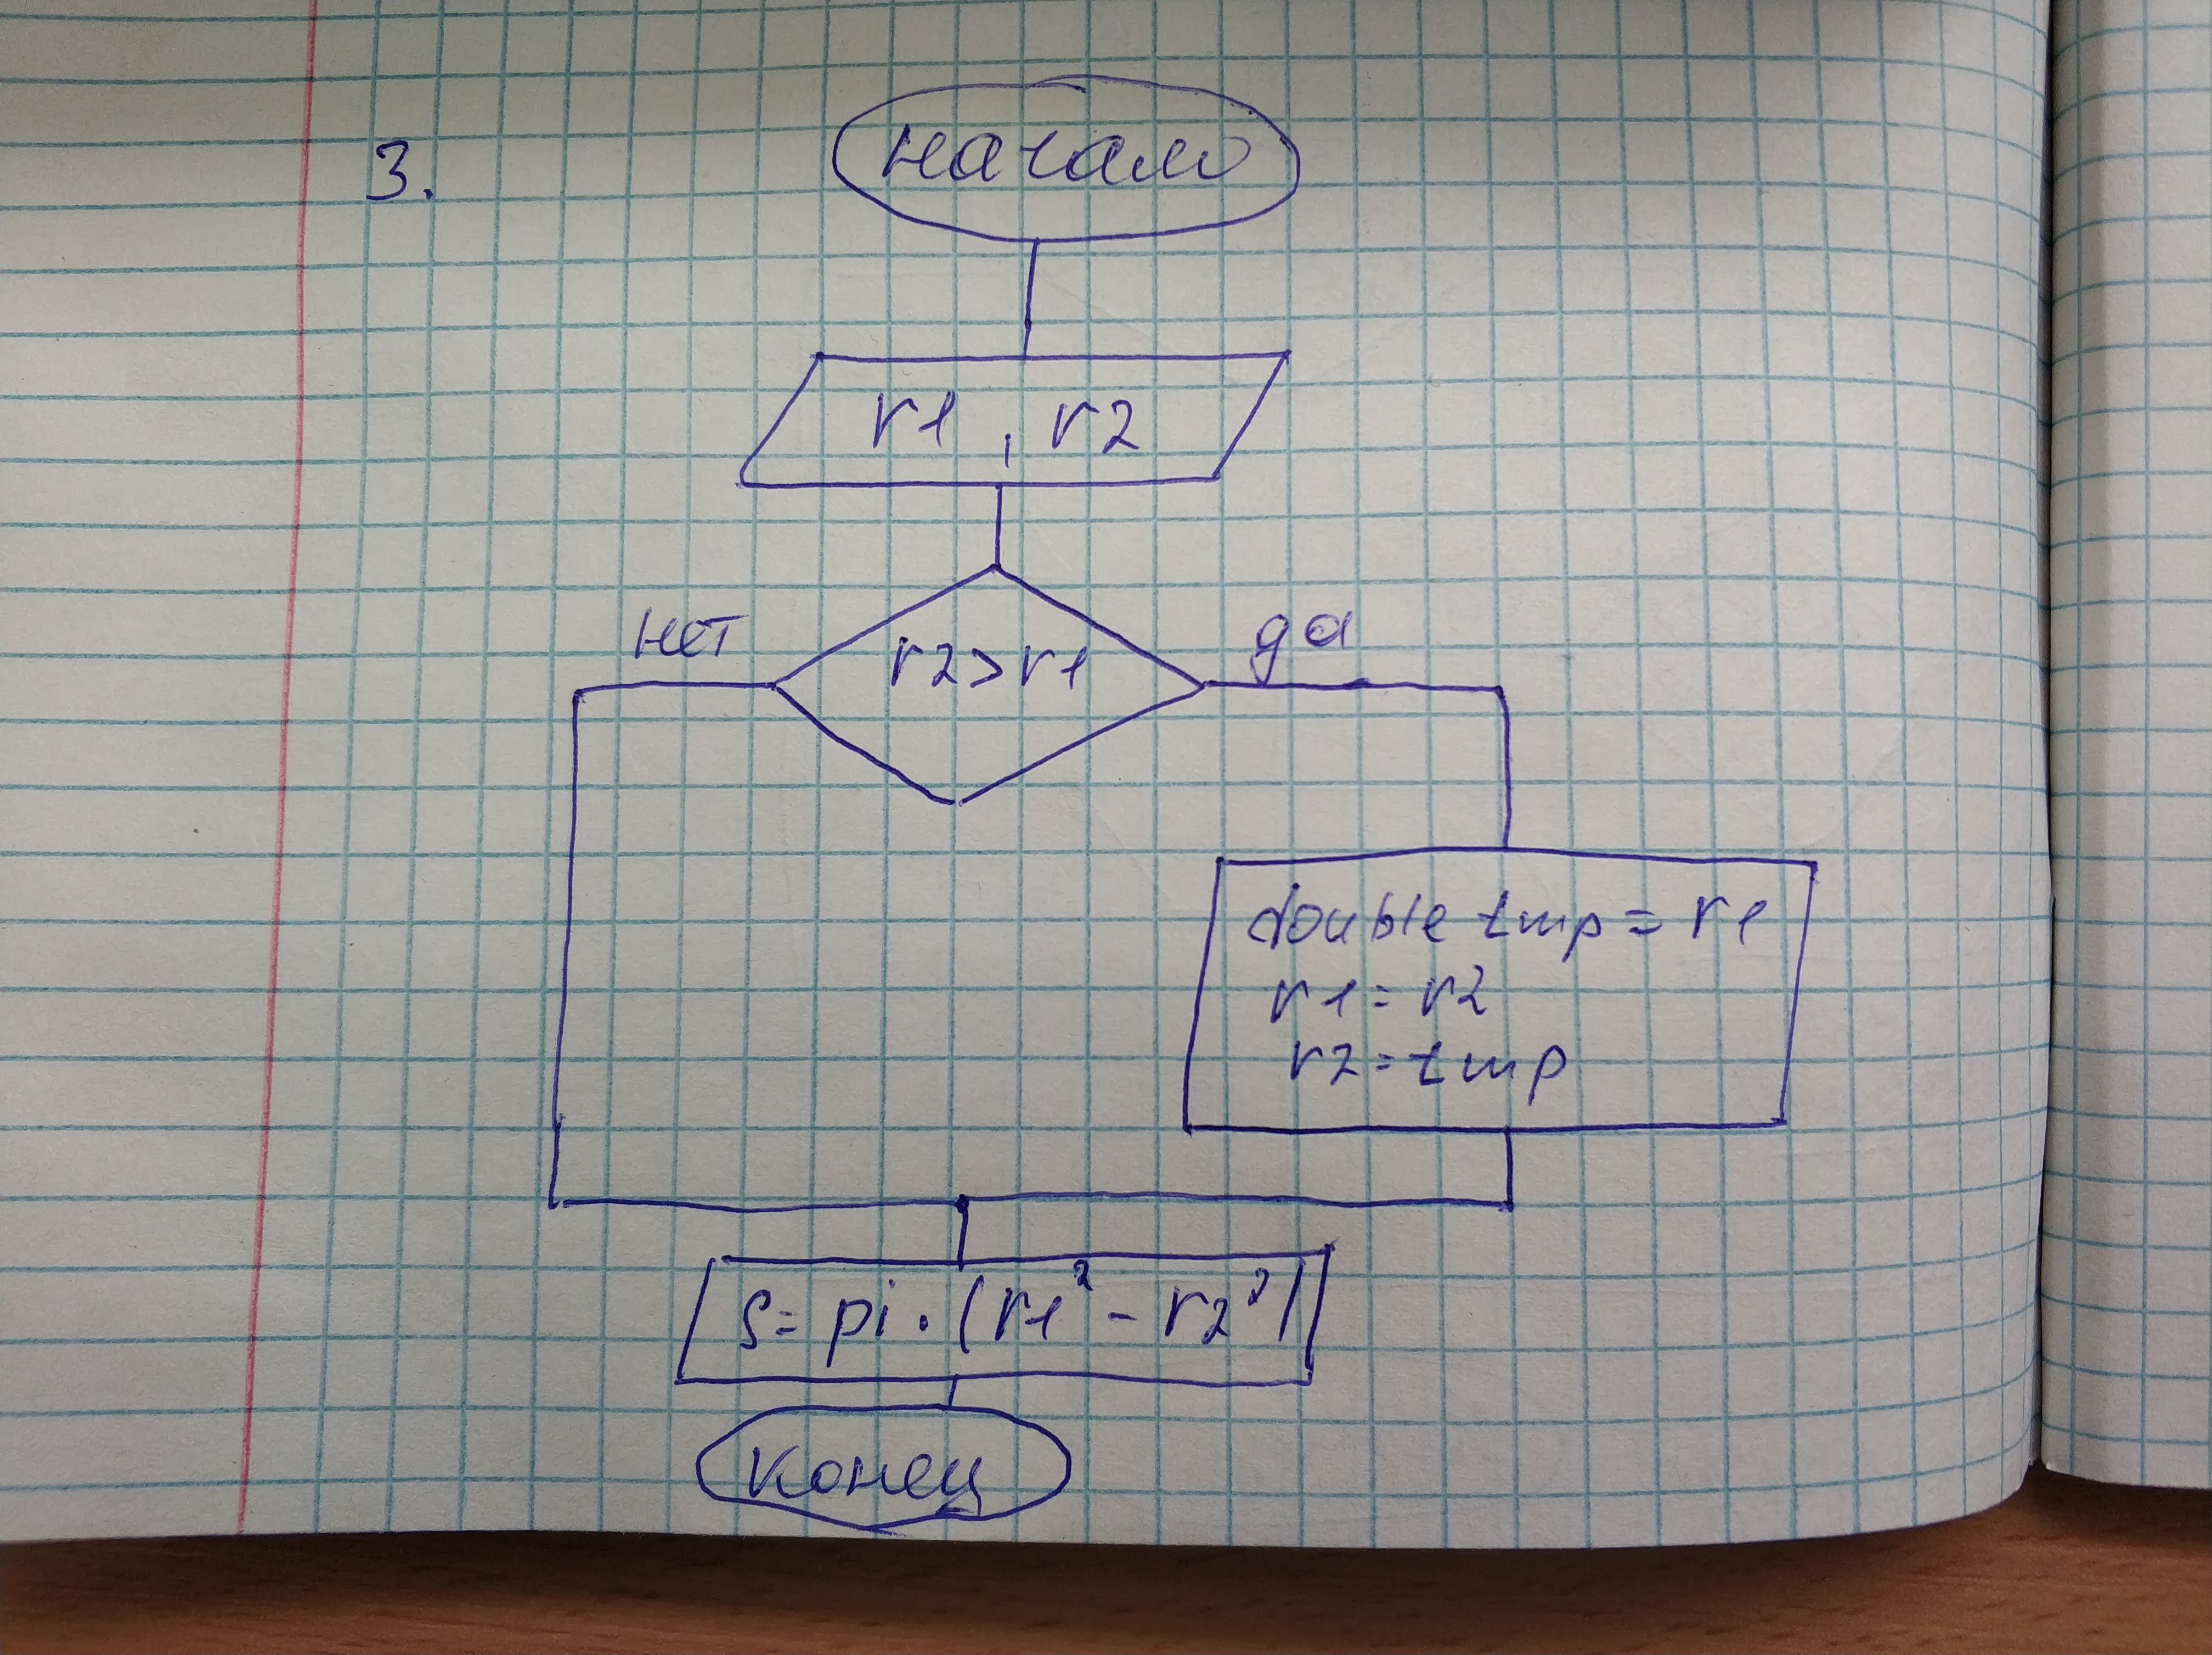 3.
начало
r1, r2
r2>r1
нет
да
double tmp = r1
r1 = r2
r2 = tmp
S = pi · (r1² - r2²)
конец